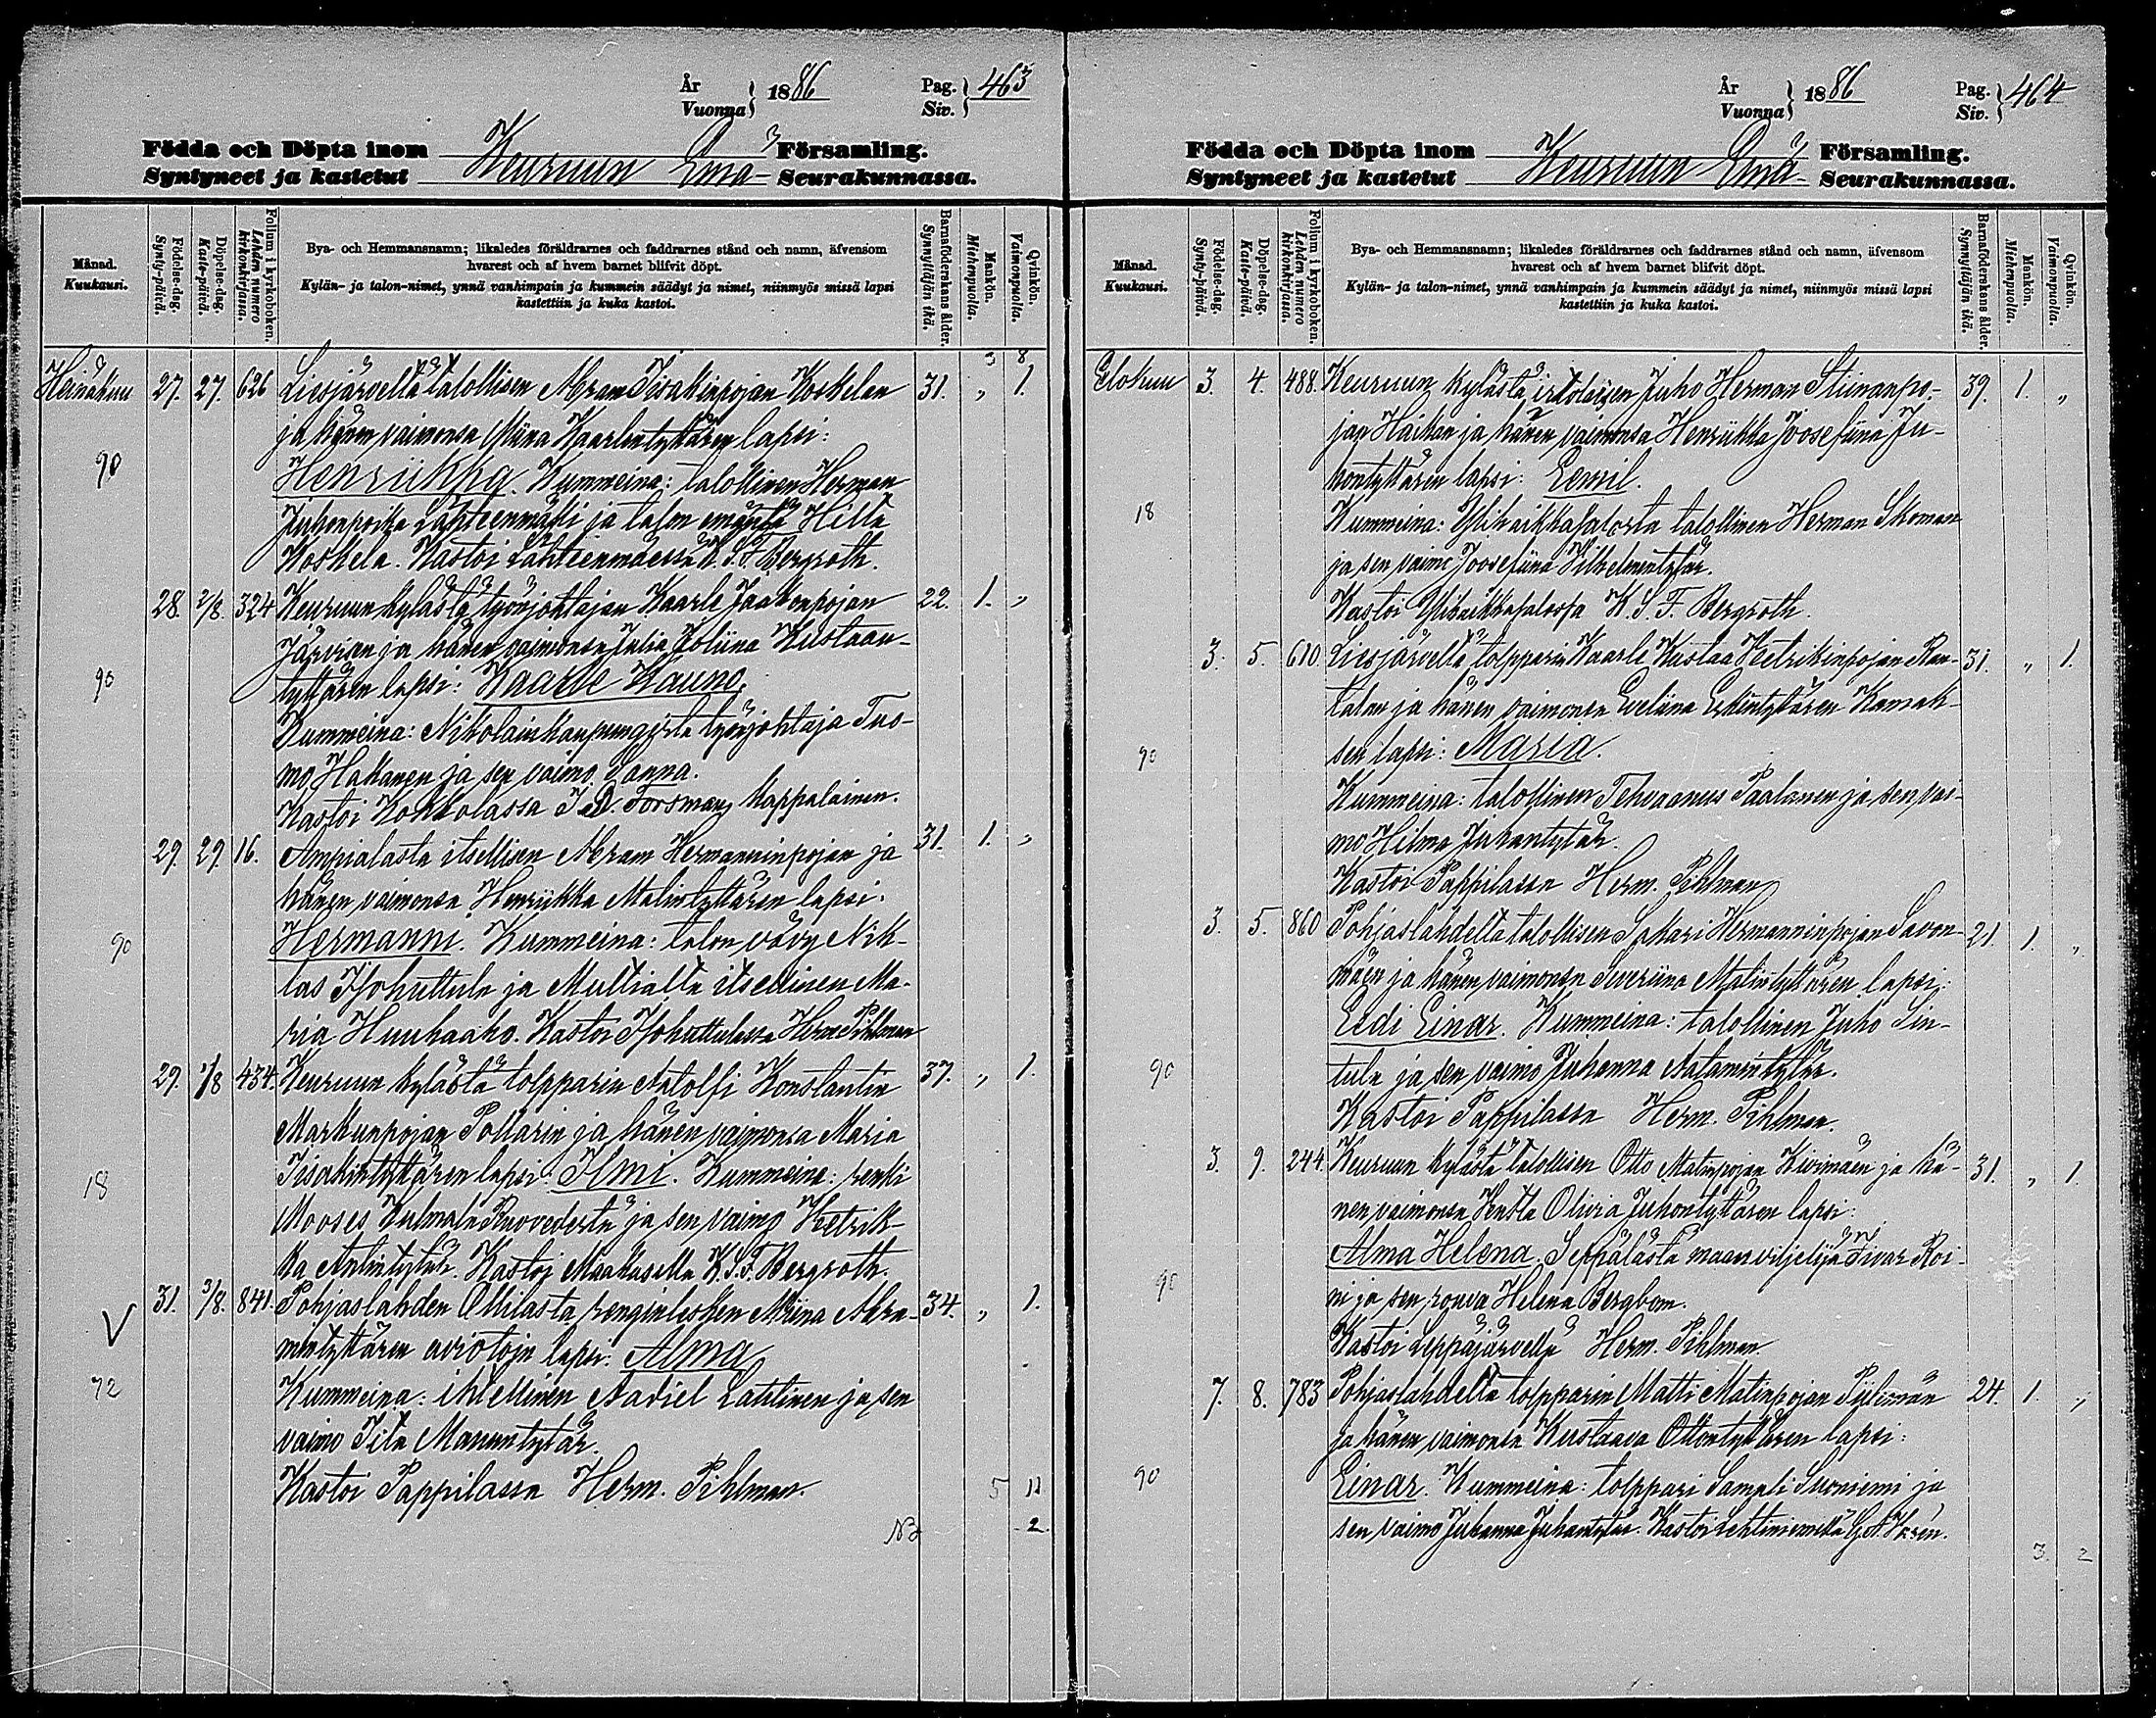 År
Vuonna } 1886 Pag.
Siv. } 463
Födda och Döpta inom Keuruun Emä- Församling.
Syntyneet ja kastetut Seurakunnassa.
Månad.
Kuukausi.
Födelse-dag.
Synty-päivä.
Döpelse-dag.
Kaste-päivä.
Folium i kyrkoboken.
Lehden numero kirkonkirjassa.
Bya- och Hemmansnamn; likaledes föräldrarnes och faddrarnes stånd och namn, äfvensom
hvarest och af hvem barnet blifvit döpt.
Kylän- ja talon-nimet, ynnä vanhimpain ja kummein säädyt ja nimet, niinmyös missä lapsi
kastettiin ja kuka kastoi.
Barnaföderskans ålder.
Synnyttäjän ikä.
Mankön.
Miehenpuolia.
Qvinkön.
Vaimonpuolia.
3 8
Heinäkuu 27. 27. 626 Liesjärveltä talollisen Abram Iisakinpojan Koskelan 31. „ 1.
ja hänen vaimonsa Miina Kaarlentyttären lapsi:
90 Henriikka. Kummeina: talollinen Herman
Juhonpoika Lähteenmäki ja talon emäntä Hilta
Koskela. Kastoi Lähteenmäessä K. S. F. Bergroth.
28. 2/8. 324 Keuruun kylästä työnjohtajan Kaarle Jaakonpojan 22. 1. „
Järvisen ja hänen vaimonsa Julia Joliina Kustaan-
90 tyttären lapsi: Kaarle Kauno.
Kummeina: Nikolainkaupungista työnjohtaja Tuo-
mo Hakanen ja sen vaimo Sanna.
Kastoi Kokkolassa Forsman, kappalainen.
29. 29. 16. Ampialasta itsellisen Abram Hermanninpojan ja 31. 1. „
hänen vaimonsa Henriikka Matintyttären lapsi:
90 Hermanni. Kummeina: talon vävy Nik-
las Pohuttula ja Multialta itsellinen Ma-
ria Huuhaaho. Kastoi Pohuttulassa Herm. Pihlman
29. 1/8 434. Keuruun kylästä torpparin Aatolfi Konstantin 37. „ 1.
Markunpojan Pollarin ja hänen vaimonsa Maria
18 Iisakintyttären lapsi: Ilmi. Kummeina: renki
Mooses Kulmala Ruovedestä ja sen vaimo Hetrik-
ka Antintytär. Kastoi K. S. F. Bergroth.
V 31. 3/8. 841. Pohjaslahden Ollilasta renginlesken Miina Abra- 34. „ 1.
mintyttären aviotoin lapsi: Alma
72 Kummeina: itsellinen Aadiel Lahtinen ja sen
vaimo Iita Manuntytär.
Kastoi Pappilassa Herm. Pihlman. 5 11
2.
År
Vuonna } 1886 Pag.
Siv. } 464
Födda och Döpta inom Keuruun Emä- Församling.
Syntyneet ja kastetut Seurakunnassa.
Månad.
Kuukausi.
Födelse-dag.
Synty-päivä.
Döpelse-dag.
Kaste-päivä.
Folium i kyrkoboken.
Lehden numero kirkonkirjassa.
Bya- och Hemmansnamn; likaledes föräldrarnes och faddrarnes stånd och namn, äfvensom
hvarest och af hvem barnet blifvit döpt.
Kylän- ja talon-nimet, ynnä vanhimpain ja kummein säädyt ja nimet, niinmyös missä lapsi
kastettiin ja kuka kastoi.
Barnaföderskans ålder.
Synnyttäjän ikä.
Mankön.
Miehenpuolia.
Qvinkön.
Vaimonpuolia.
Elokuu 3. 4. 488. Keuruun kylästä irtolaisen Juho Herman Stiinanpo- 39. 1. „
jan Haikan ja hänen vaimonsa Henriikka Joosefiina Ju-
hontyttären lapsi: Eemil.
18 Kummeina: Ylihaikkasalosta talollinen Herman Skoman
ja sen vaimo Joosefiina Vilhelmintytär.
Kastoi Ylihaikkasalossa K. S. F. Bergroth.
3. 5. 610. Liesjärveltä torpparin Kaarle Kustaa Hetrikinpojan Ran- 31. „ 1.
talan ja hänen vaimonsa Eveliina Eskintyttären Kamak-
90 sen lapsi: Maria.
Kummeina: talollinen Tehvaanus Paalanen ja sen vai-
mo Hilma Juhantytär.
Kastoi Pappilassa Herm. Pihlman
3. 5. 860 Pohjaslahdelta talollisen Sakari Hermanninpojan Savon- 21. 1. „
mäen ja hänen vaimonsa Severiina Matintyttären lapsi:
Eedi Einar. Kummeina: talollinen Juho Sin-
90 tula ja sen vaimo Juhanna Aatamintytär.
Kastoi Pappilassa Herm. Pihlman.
3. 9. 244. Keuruun kylästä talollisen Otto Matinpojan Kivimäen ja hä- 31. „ 1.
nen vaimonsa Hentta Olivia Juhontyttären lapsi:
Alma Helena. Seppälästä maanviljelijä Iivar Roi-
90 ni ja sen rouva Helena Bergbom.
Kastoi Leppäjärvellä Herm. Pihlman
7. 8. 783 Pohjaslahdelta torpparin Matti Matinpojan 24. 1. „
ja hänen vaimonsa Kustaava Ottontyttären lapsi:
90 Einar. Kummeina: torppari Sampli Suoniemi ja
sen vaimo Juhanna Juhantytär. Kastoi Lehtiniemellä
3. 2